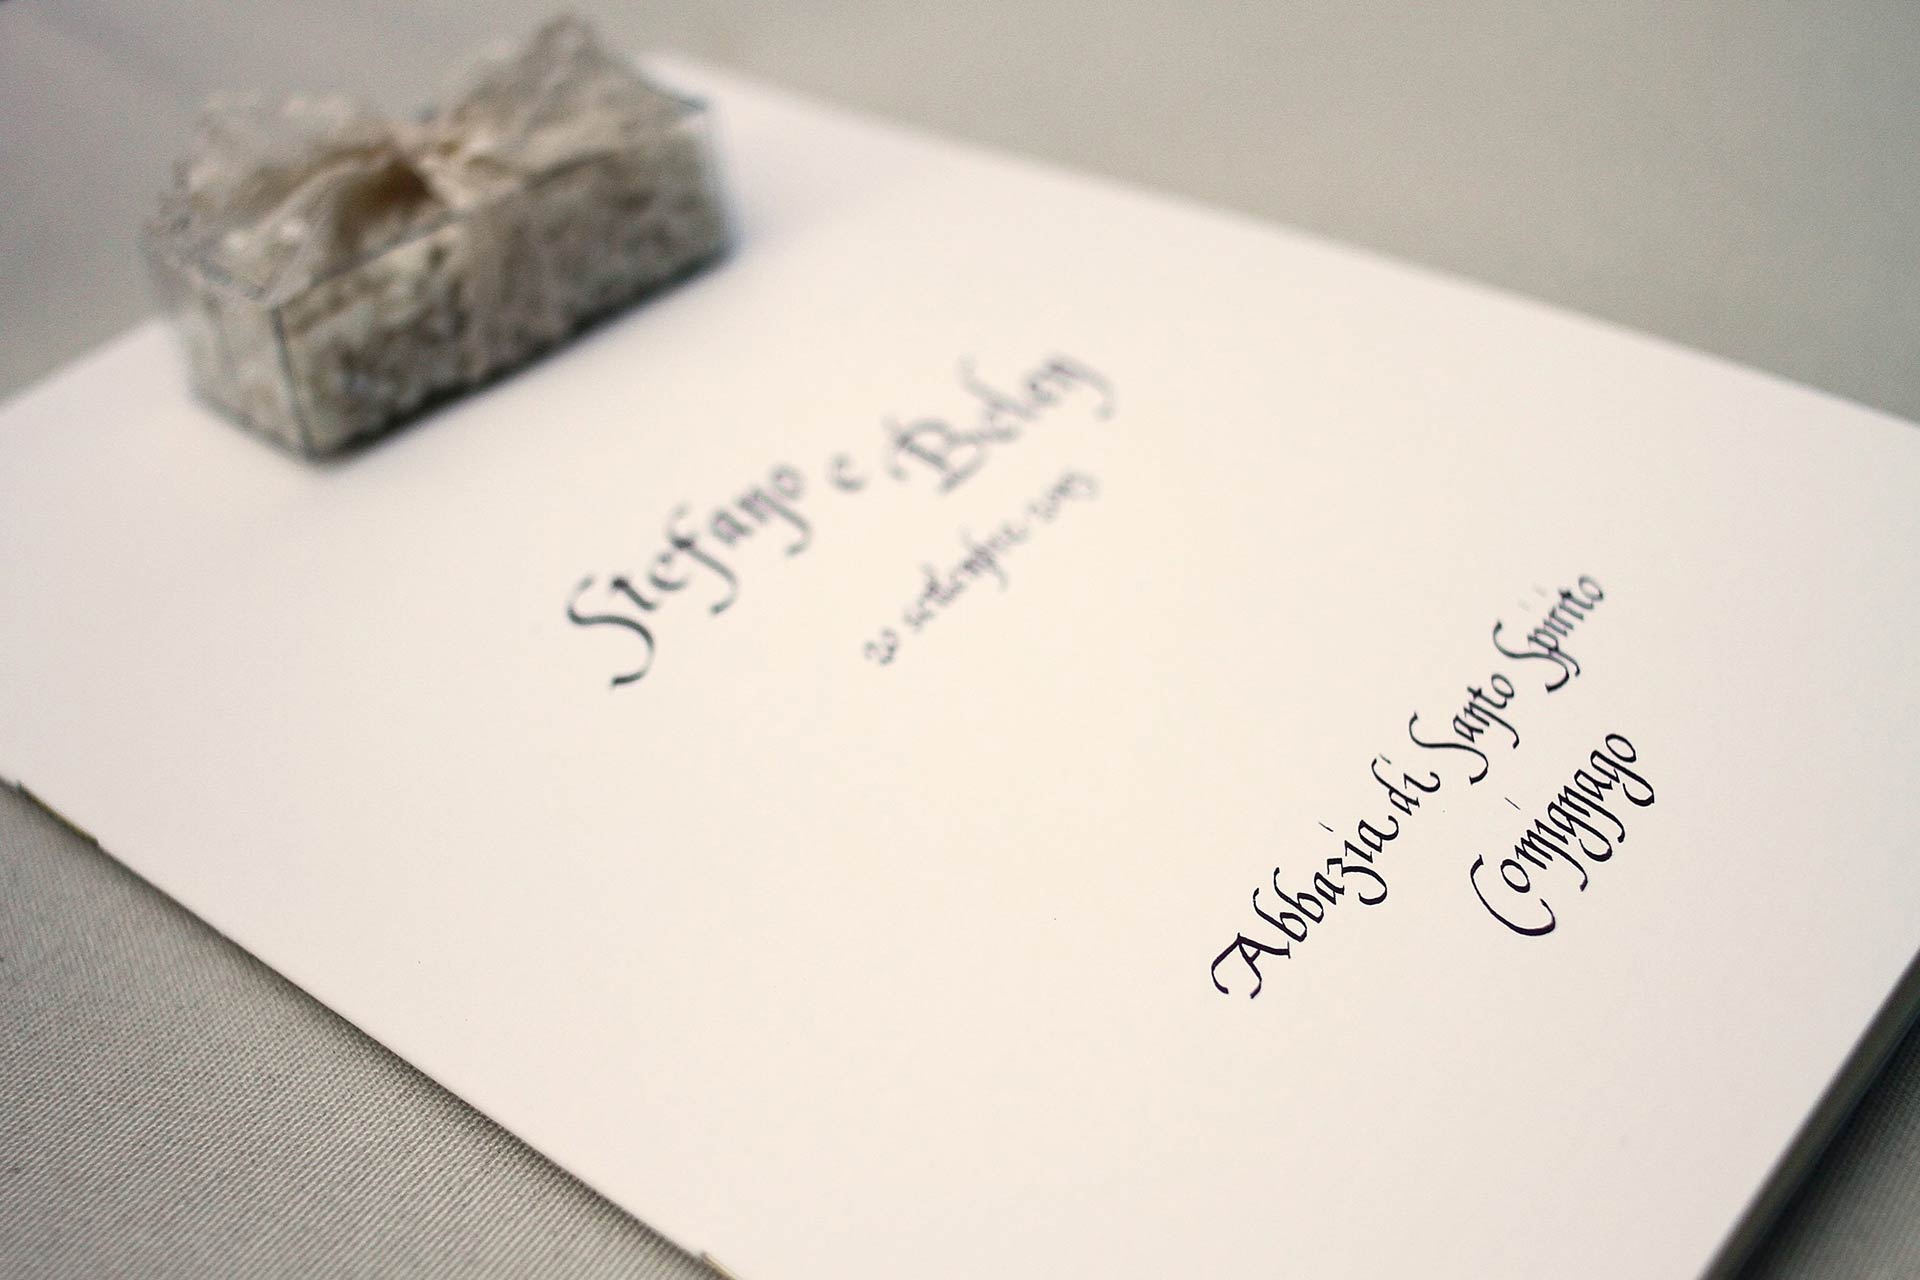 Stefano e Beley
20 settembre 2013
Abbazia di Santo Spirito
Comignago